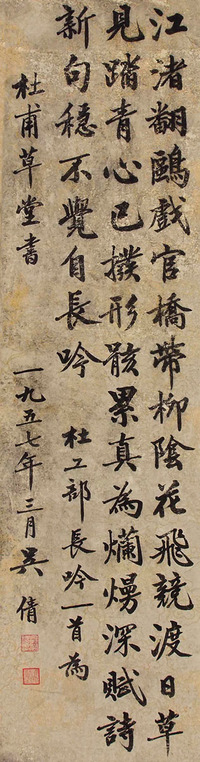 江渚翻鷗戲官橋帶柳陰花飛競渡日草
見踏青心已撥形骸累真為爛熳深賦詩
新句穩不覺自長吟 杜工部長吟一首為
杜甫草堂書 一九五七年三月吴倩